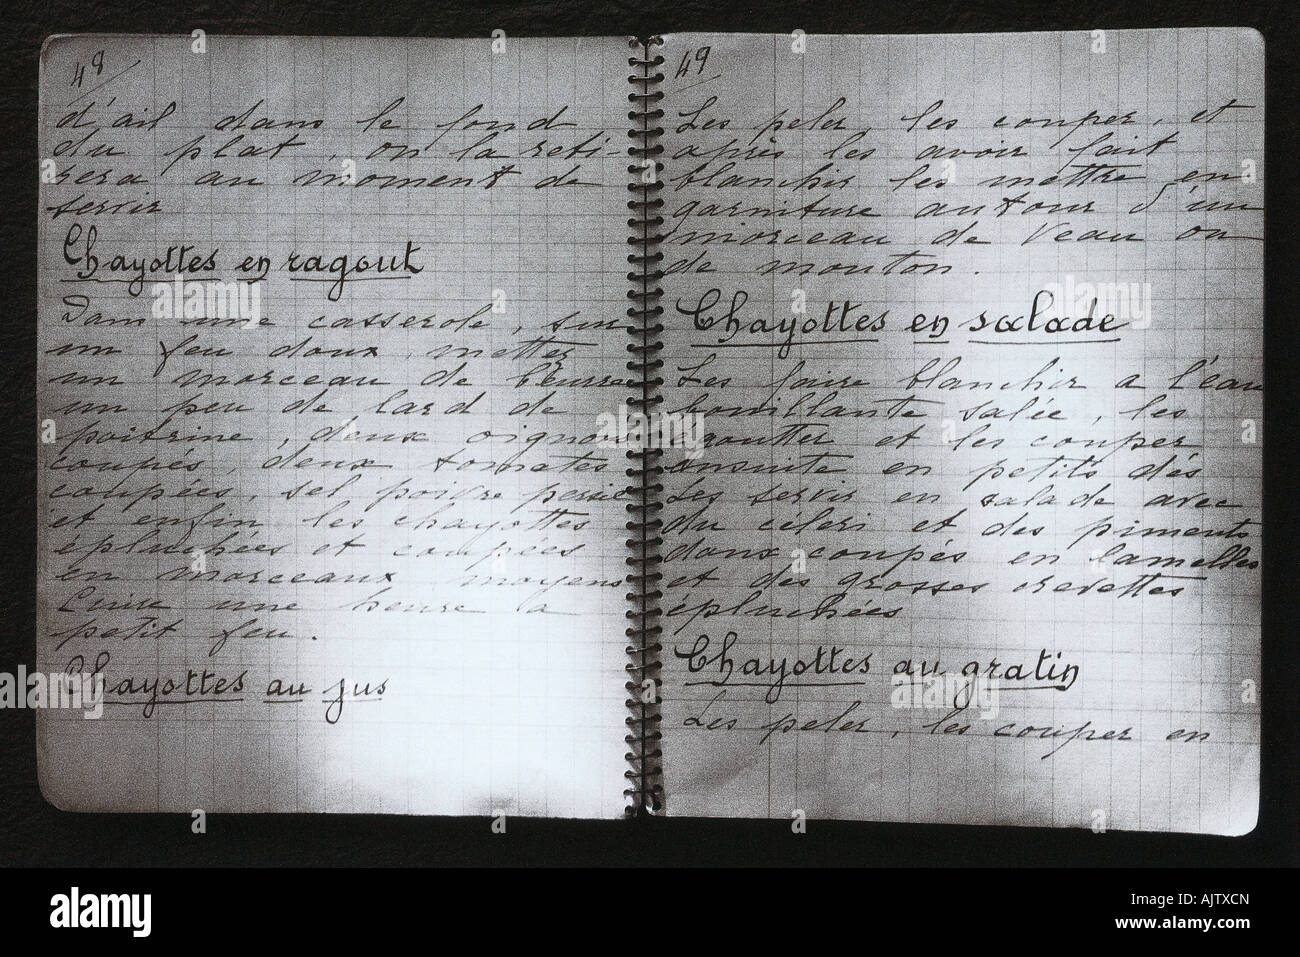 48
d'ail dans le fond
du plat, on la reti-
rera au moment de
servir
Chayottes en ragout
Dans une casserole, sur
un feu doux, mettez
un morceau de beurre
un peu de lard de
poitrine, deux oignons
coupés, deux tomates
coupées, sel poivre persil
et enfin les chayottes
épluchées et coupées
en morceaux moyens
Cuire une heure a
petit feu.
Chayottes au jus
49
Les peler, les couper, et
après les avoir fait
blanchir les mettre en
garniture autour d'un
morceau de veau ou
de mouton.
Chayottes en salade
Les faire blanchir a l'eau
bouillante salée, les
égoutter et les couper
ensuite en petits dés
Les servir en salade avec
du céleri et des piments
doux coupés en lamelles
et des grosses crevettes
épluchées
Chayottes au gratin
Les peler, les couper en
alamy
Image ID: AJTXCN
www.alamy.com